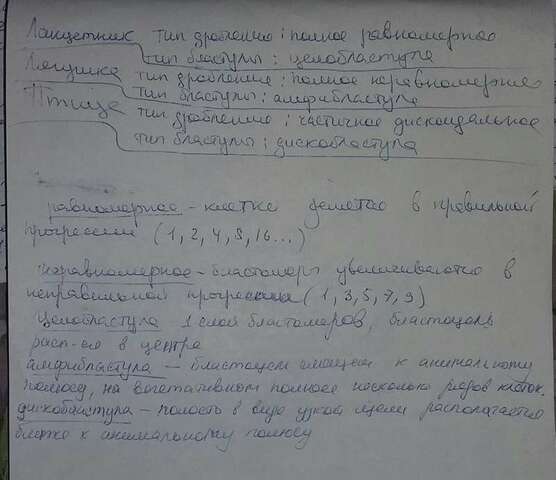 Ланцетник тип дробления: полное равномерное
тип бластулы: целобластула
Лягушка тип дробления: полное неравномерное
тип бластулы: амфибластула
Птица тип дробления: частичное дискоидальное
тип бластулы: дискобластула
равномерное - клетке делятся в правильной
прогрессии (1, 2, 4, 8, 16...)
неравномерное - бластомеры увеличиваются в
неправильной прогрессии (1, 3, 5, 7, 9)
целобластула 1 слой бластомеров, бластоцель
расп-ся в центре
амфибластула - бластоцель смещен к анимальному
полюсу, на вегетативном полюсе несколько рядов клеток.
дискобластула - полость в виде узкой щели располагается
ближе к анимальному полюсу